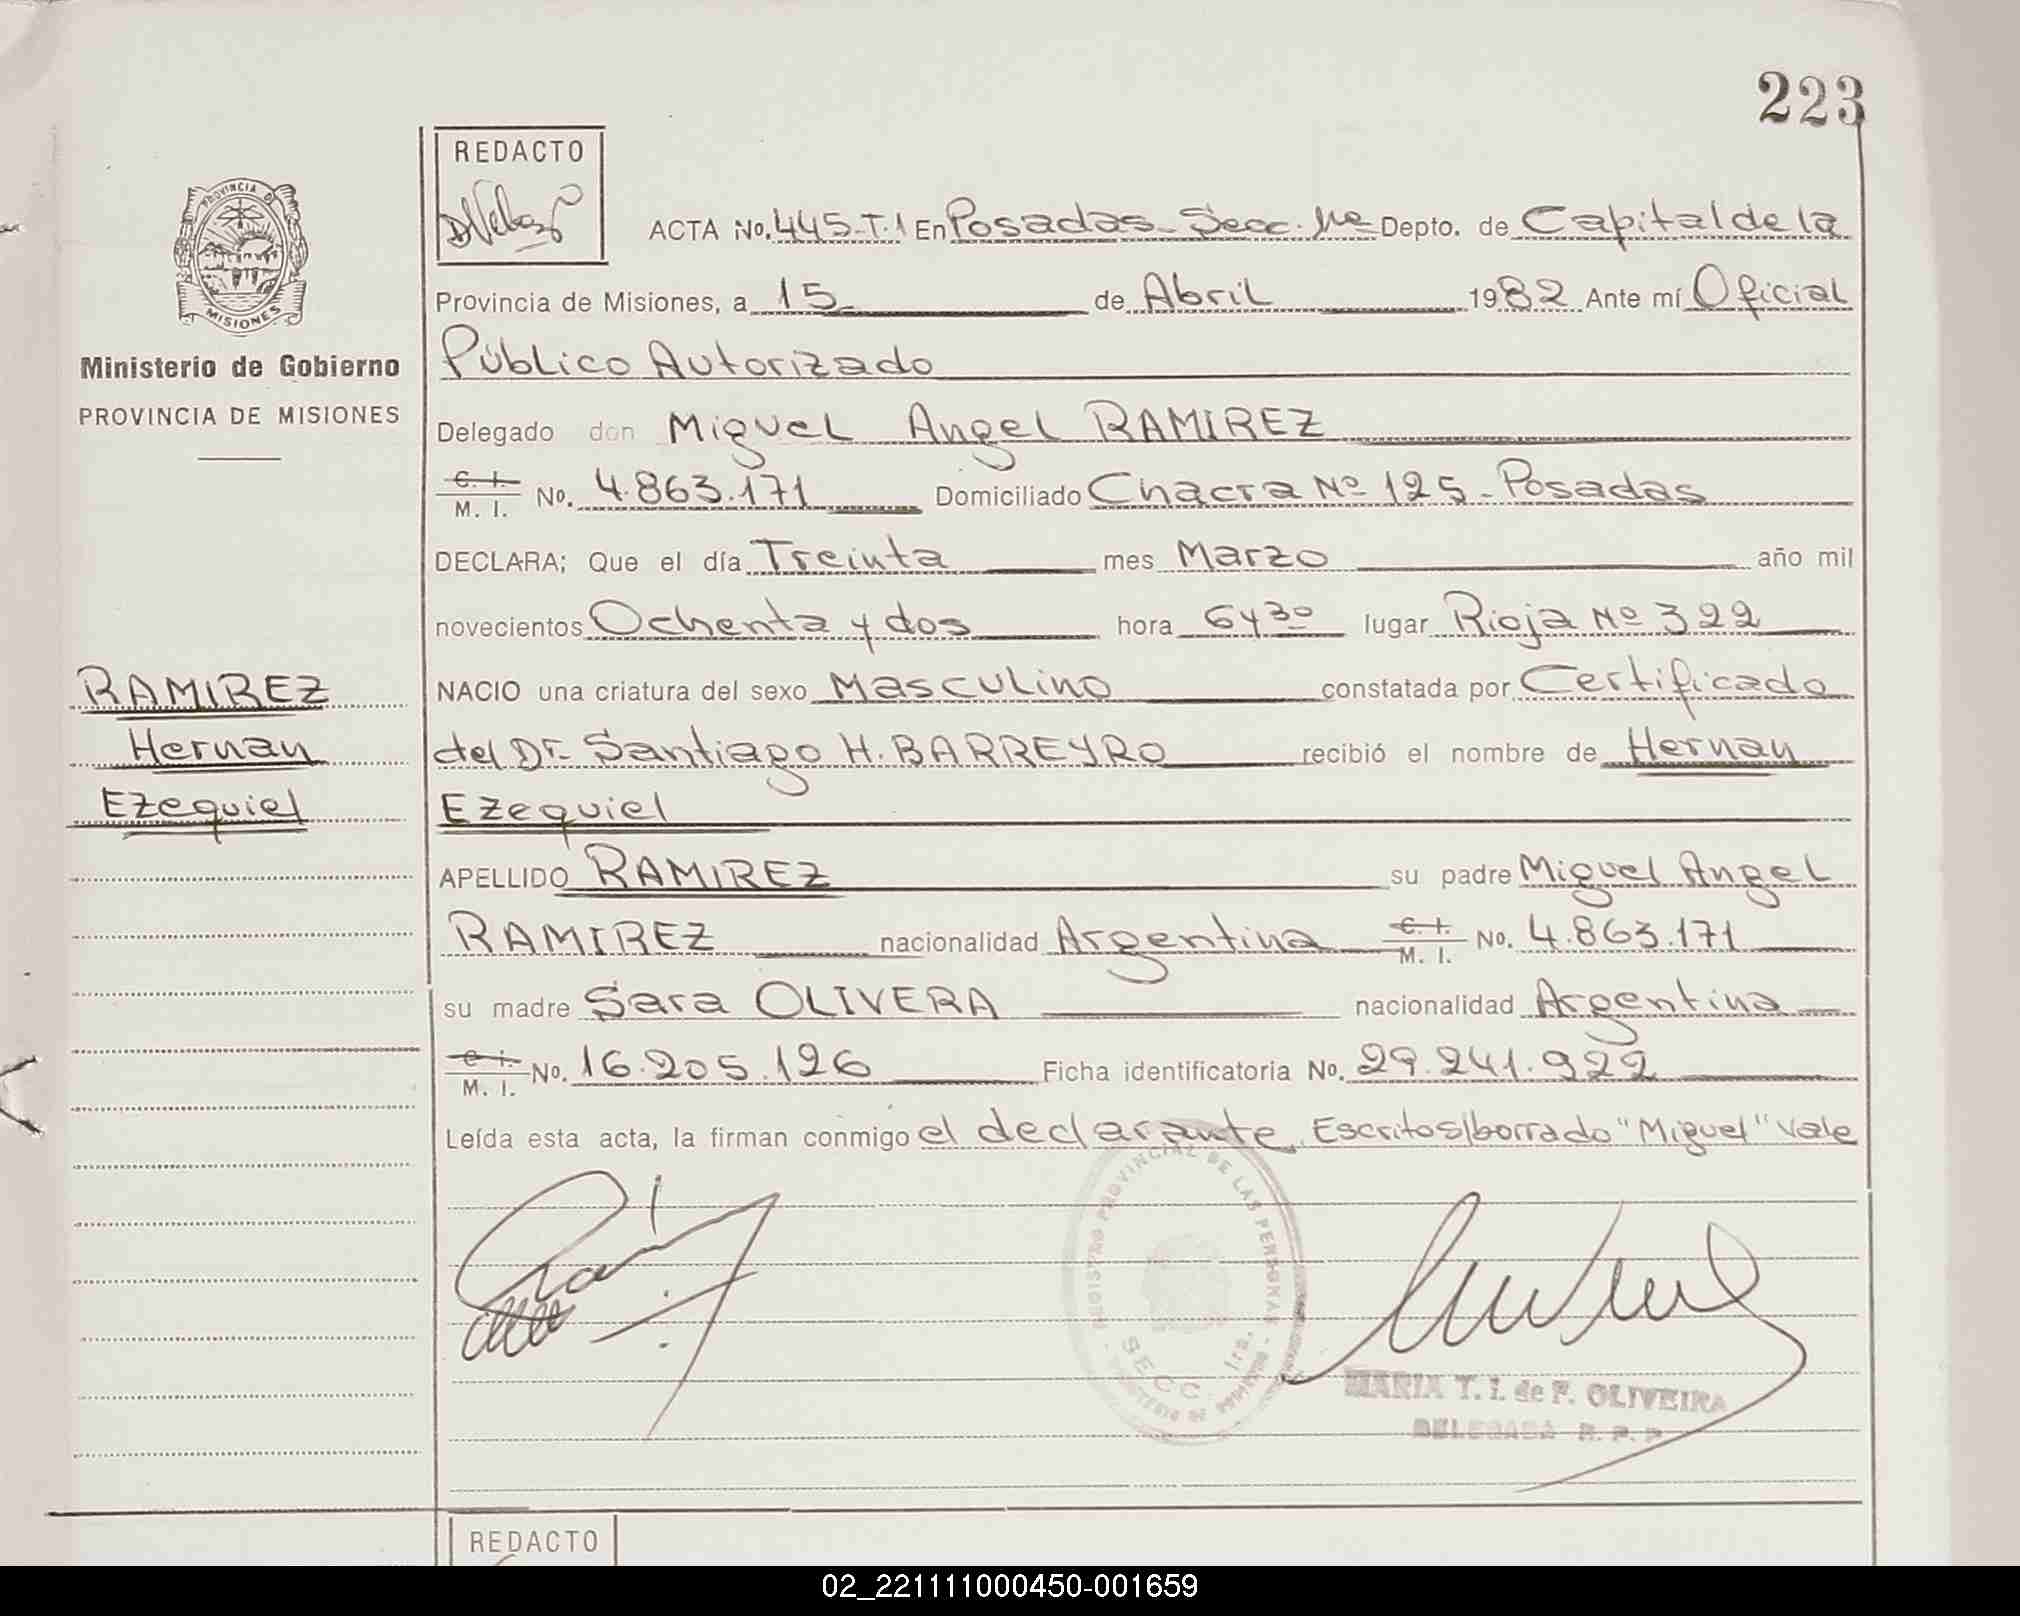 223
REDACTO
PROVINCIA DE
MISIONES
Ministerio de Gobierno
PROVINCIA DE MISIONES
ACTA No. 445-T.1 En Posadas-Secc. 1ra Depto. de Capital de la
Provincia de Misiones, a 15 de Abril 1982 Ante mí Oficial
Público Autorizado
Delegado don Miguel Angel RAMIREZ
C. I.
M. I. No. 4.863.171 Domiciliado Chacra Nº 125-Posadas
DECLARA; Que el día Treinta mes Marzo año mil
novecientos Ochenta y dos hora 6y30 lugar Rioja Nº 322
NACIO una criatura del sexo Masculino constatada por Certificado
del Dr. Santiago H. BARREYRO recibió el nombre de Hernan
Ezequiel
RAMIREZ
Hernan
Ezequiel
APELLIDO RAMIREZ su padre Miguel Angel
RAMIREZ nacionalidad Argentina C. I.
M. I. No. 4.863.171
su madre Sara OLIVERA nacionalidad Argentina
C. I.
M. I. No. 16.205.126 Ficha identificatoria No. 29.241.922
Leída esta acta, la firman conmigo el declarante. Escritos/borrado "Miguel" vale
REGISTRO PROVINCIAL DE LAS PERSONAS
SECC. 1ra.
MARIA T. I. de F. OLIVEIRA
DELEGADA R. P. P.
REDACTO
02_221111000450-001659